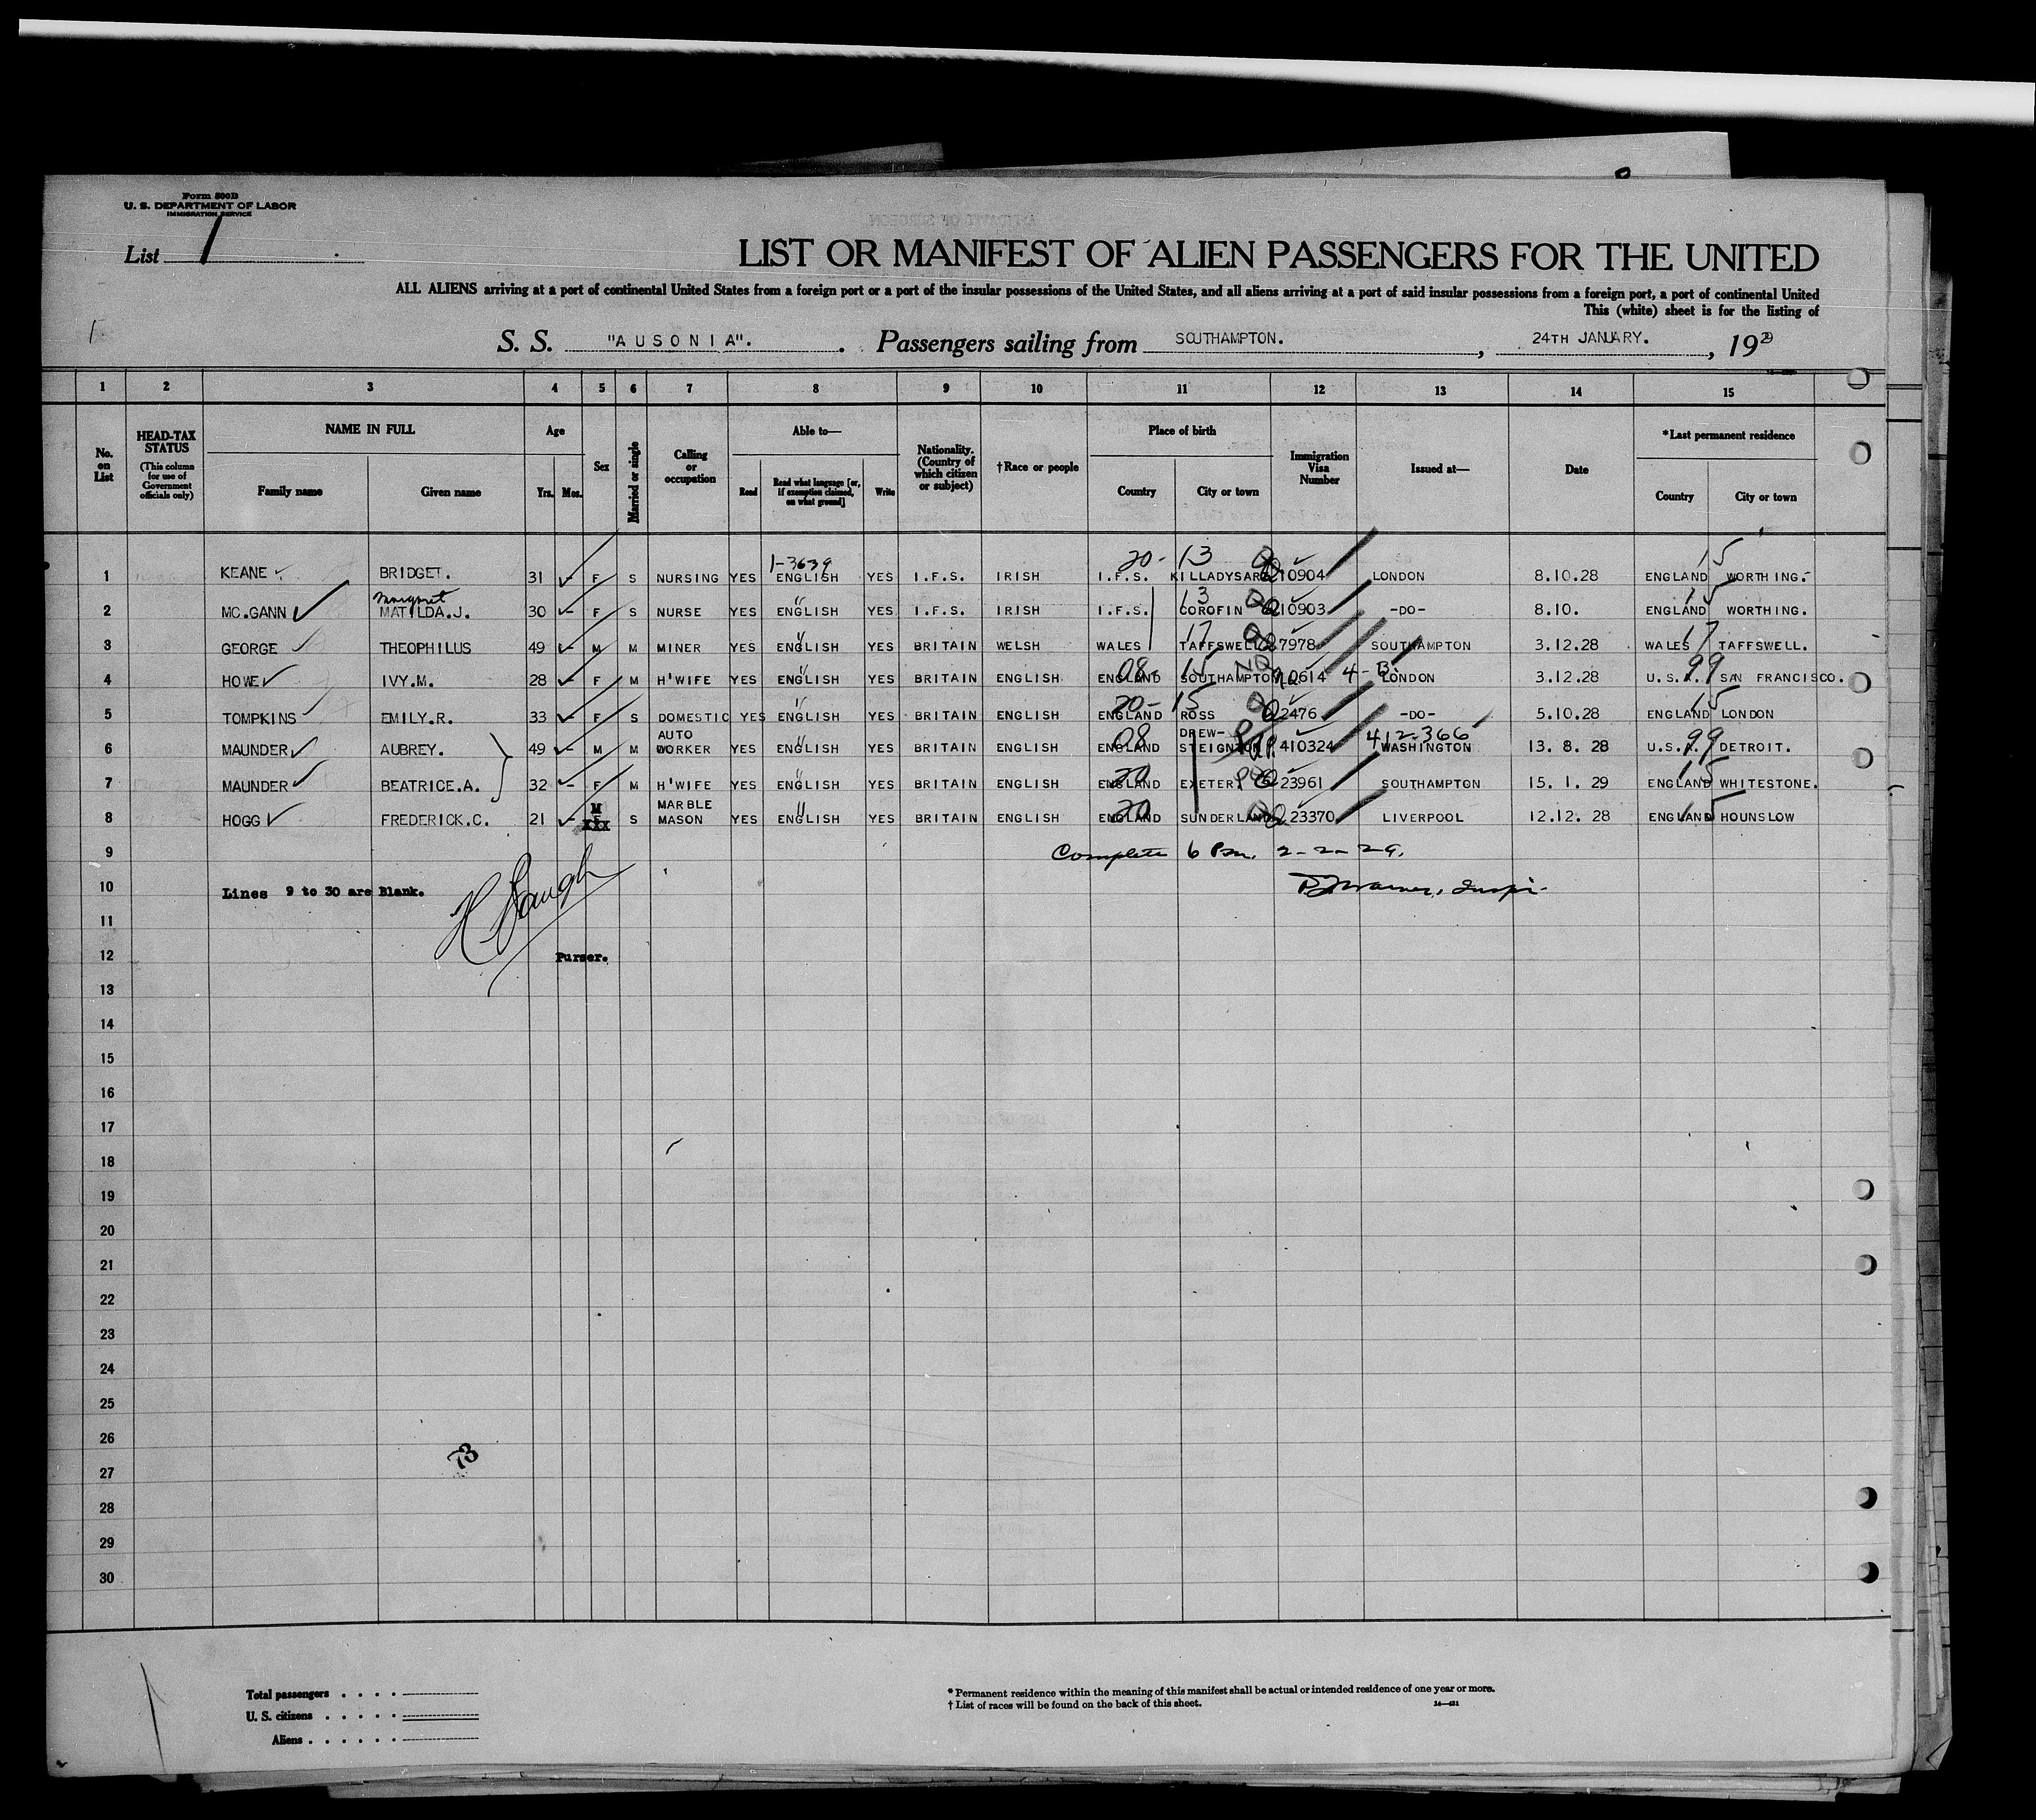 Form 500B
U. S. DEPARTMENT OF LABOR
IMMIGRATION SERVICE
List 1
LIST OR MANIFEST OF ALIEN PASSENGERS FOR THE UNITED
ALL ALIENS arriving at a port of continental United States from a foreign port or a port of the insular possessions of the United States, and all aliens arriving at a port of said insular possessions from a foreign port, a port of continental United
This (white) sheet is for the listing of
S. S. "AUSONIA". Passengers sailing from SOUTHAMPTON. , 24TH JANUARY. , 1929
1 2 3 4 5 6 7 8 9 10 11 12 13 14 15
No. on List
HEAD-TAX STATUS (This column for use of Government officials only)
NAME IN FULL
Family name Given name
Age
Yrs. Mos.
Sex
Married or single
Calling or occupation
Able to—
Read Read what language [or, if exemption claimed, on what ground] Write
Nationality. (Country of which citizen or subject)
†Race or people
Place of birth
Country City or town
Immigration Visa Number
Issued at—
Date
*Last permanent residence
Country City or town
1-3639 20- 13 15
1 KEANE BRIDGET. 31 – F S NURSING YES ENGLISH YES I.F.S. IRISH I.F.S. KILLADYSART 10904 LONDON 8.10.28 ENGLAND WORTHING.
Margaret " 13 15
2 MC.GANN MATILDA.J. 30 – F S NURSE YES ENGLISH YES I.F.S. IRISH I.F.S. COROFIN 10903 -DO- 8.10. ENGLAND WORTHING.
" 17 17
3 GEORGE THEOPHILUS 49 – M M MINER YES ENGLISH YES BRITAIN WELSH WALES TAFFSWELL 7978 SOUTHAMPTON 3.12.28 WALES TAFFSWELL.
" 08 15 NQ 4-B 99
4 HOWE IVY.M. 28 – F M H'WIFE YES ENGLISH YES BRITAIN ENGLISH ENGLAND SOUTHAMPTON 614 LONDON 3.12.28 U.S.A. SAN FRANCISCO.
" 20- 15 15
5 TOMPKINS EMILY.R. 33 – F S DOMESTIC YES ENGLISH YES BRITAIN ENGLISH ENGLAND ROSS 2476 -DO- 5.10.28 ENGLAND LONDON
AUTO " 08 DREW- 412-366 99
6 MAUNDER AUBREY. 49 – M M WORKER YES ENGLISH YES BRITAIN ENGLISH ENGLAND STEIGNTON 410324 WASHINGTON 13. 8. 28 U.S.A. DETROIT.
" 20 15
7 MAUNDER BEATRICE.A. 32 – F M H'WIFE YES ENGLISH YES BRITAIN ENGLISH ENGLAND EXETER 23961 SOUTHAMPTON 15. 1. 29 ENGLAND WHITESTONE.
M MARBLE " 20 15
8 HOGG FREDERICK.C. 21 – XXX S MASON YES ENGLISH YES BRITAIN ENGLISH ENGLAND SUNDERLAND 23370 LIVERPOOL 12.12. 28 ENGLAND HOUNSLOW
9 Complete 6 Pm. 2-2-29.
10 Lines 9 to 30 are Blank.
11
12 Purser.
13
14
15
16
17
18
19
20
21
22
23
24
25
26
73
27
28
29
30
Total passengers . . . .
U. S. citizens . . . . .
Aliens . . . . . .
* Permanent residence within the meaning of this manifest shall be actual or intended residence of one year or more.
† List of races will be found on the back of this sheet. 14—421